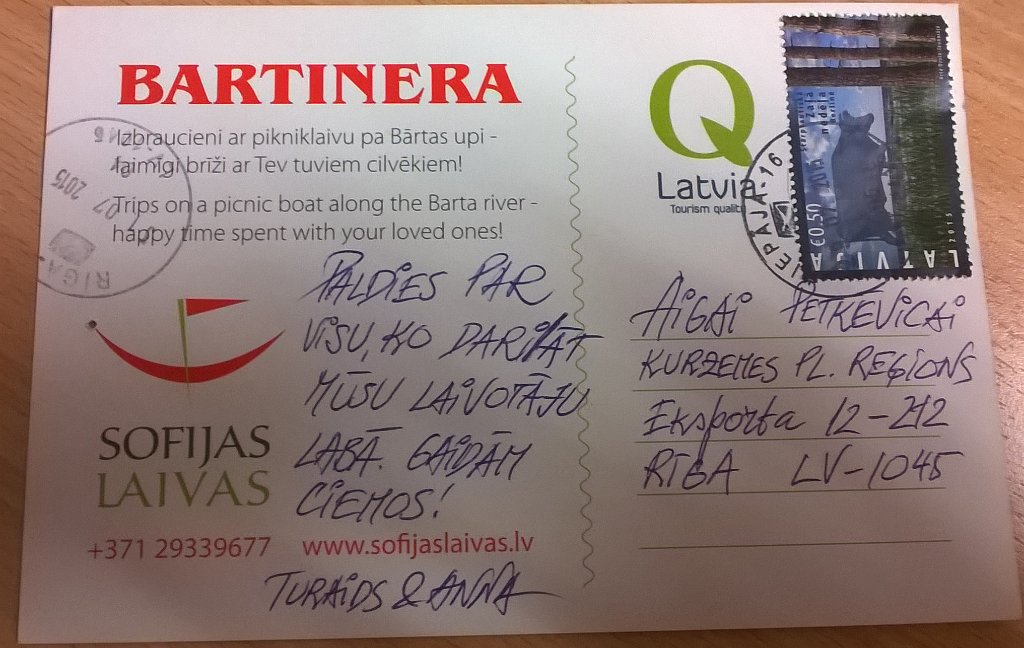 BARTINERA
Izbraucieni ar pikniklaivu pa Bārtas upi -
laimīgi brīži ar Tev tuviem cilvēkiem!
Trips on a picnic boat along the Barta river -
happy time spent with your loved ones!
RĪGA
2015
PALDIES PAR
VISU, KO DARĀT
MŪSU LAIVOTĀJU
LABĀ. GAIDĀM
CIEMOS!
SOFIJAS
LAIVAS
+371 29339677 www.sofijaslaivas.lv
TURAIDS & ANNA
Q
Latvia
Tourism quality
LIEPĀJA-16
€0.50
LATVIJA
2015
AIGAI PETKEVICAI
KURZEMES PL. REĢIONS
Eksporta 12-212
RĪGA LV-1045